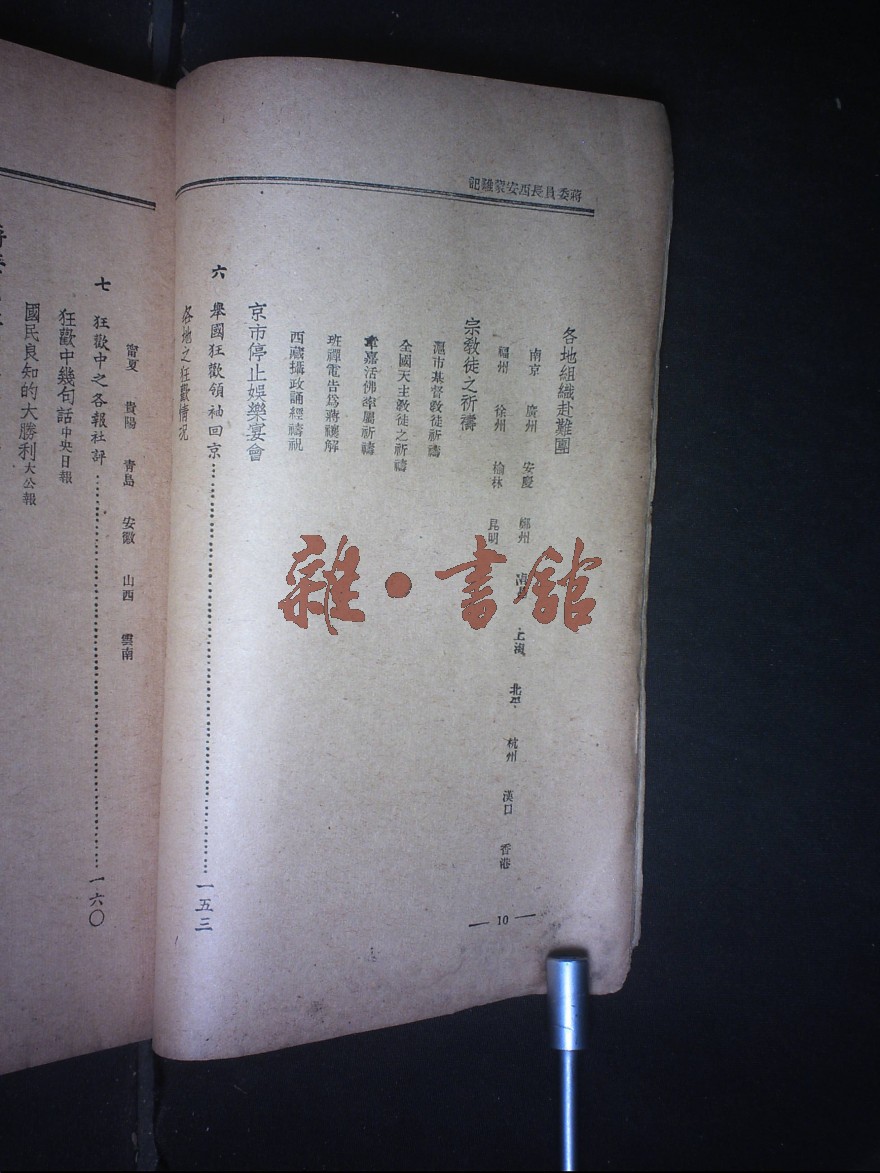 蔣委員長西安蒙難記
各地組織赴難團
南京 廣州 安慶 鄭州 南昌 上海 北平 杭州 漢口 香港
福州 徐州 榆林 昆明
宗教徒之祈禱
滬市基督教徒祈禱
全國天主教徒之祈禱
章嘉活佛率屬祈禱
班禪電告爲蔣禳解
西藏攝政誦經禱祝
京市停止娛樂宴會
六 舉國狂歡領袖回京……一五三
各地之狂歡情况
— 10 —
甯夏 貴陽 青島 安徽 山西 雲南
七 狂歡中之各報社評……一六〇
狂歡中幾句話中央日報
國民良知的大勝利大公報
雜·書館